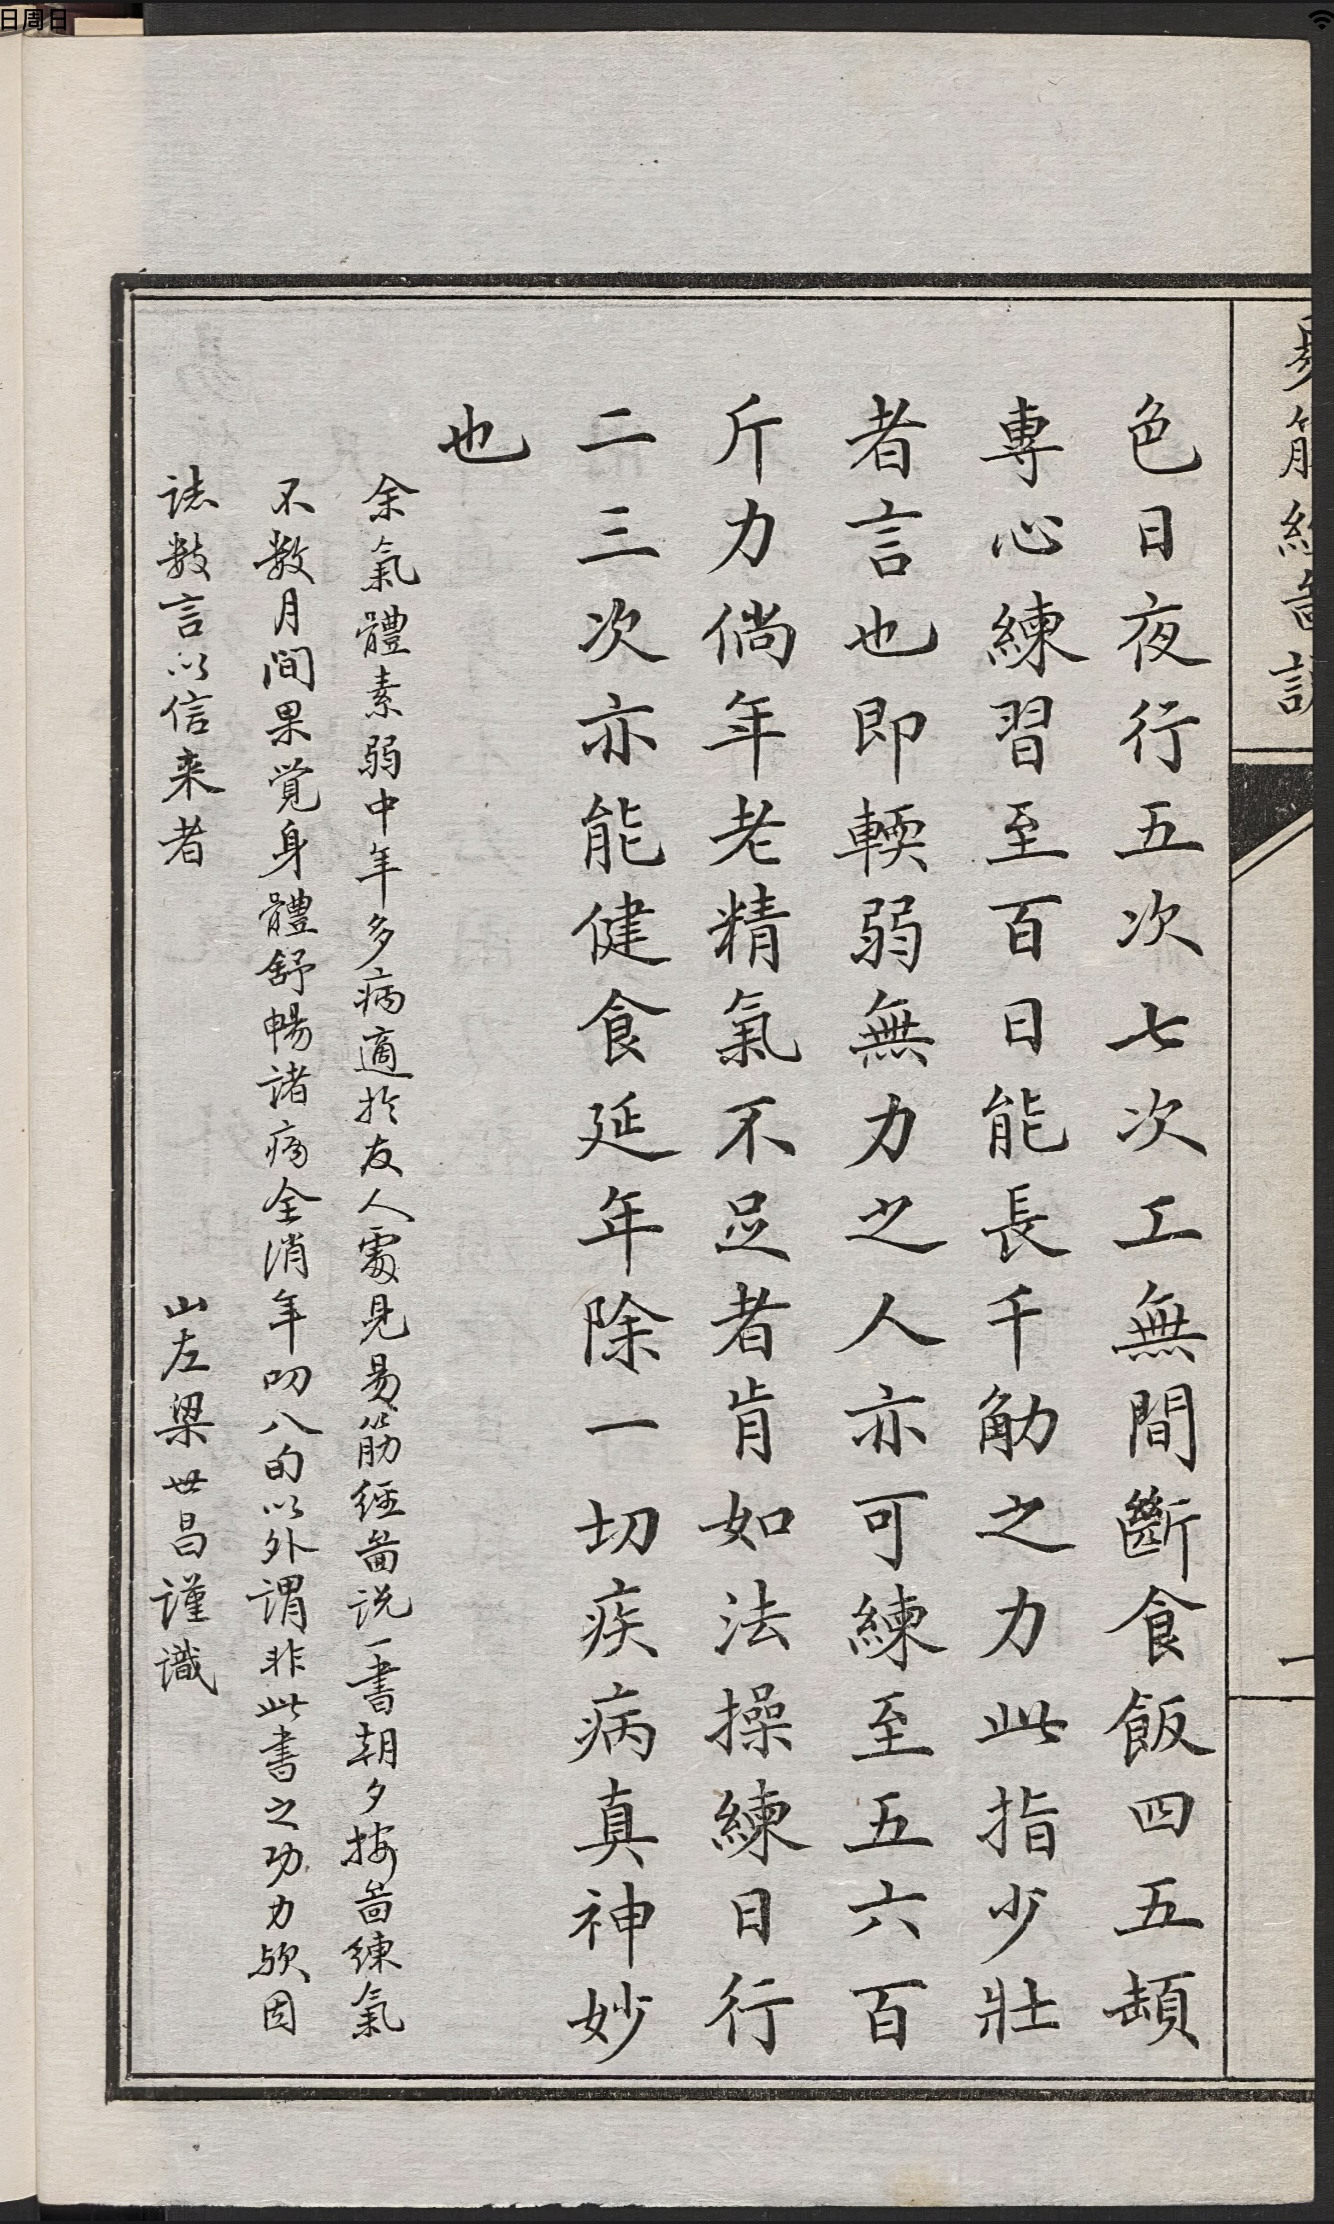 日周日
易筋經啚說
一
色日夜行五次七次工無間斷食飯四五頓
專心練習至百日能長千觔之力此指少壯
者言也即輭弱無力之人亦可練至五六百
斤力倘年老精氣不足者肯如法操練日行
二三次亦能健食延年除一切疾病真神妙
也
余氣體素弱中年多病適於友人處見易筋經啚说一書朝夕按啚練氣
不數月間果覺身體舒暢諸病全消年叨八旬以外謂非此書之功力歟因
誌數言以信来者 山左梁世昌謹識